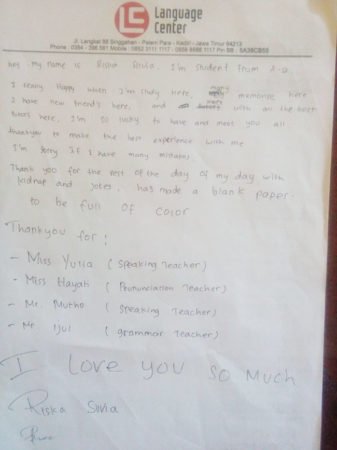 LC
Language
Center
Jl. Langkat 88 Singgahan - Pelem Pare - Kediri - Jawa Timur 64213
Phone : 0354 - 396 581 Mobile : 0852 3111 1117 - 0856 1117 Pin BB : 5A36CB55
hey. My name is Riska Silvia, I'm student from
I really Happy when I'm study here, many memories here
I have new friend's here, and with all the best
tutors here, I'm so lucky to have and meet you all
thankyou to make the best experience with me
I'm sorry If I have many mistakes
Thank you for the rest of the day of my day with
kidnap and jokes. has made a blank paper.
to be full of color
Thankyou for :
- Miss Yulia ( Speaking Teacher )
- Miss Hayati ( Pronunciation Teacher )
- Mr. Mutho ( Speaking Teacher )
- Mr Ijul ( grammar Teacher )
I love you so much
Riska Silvia